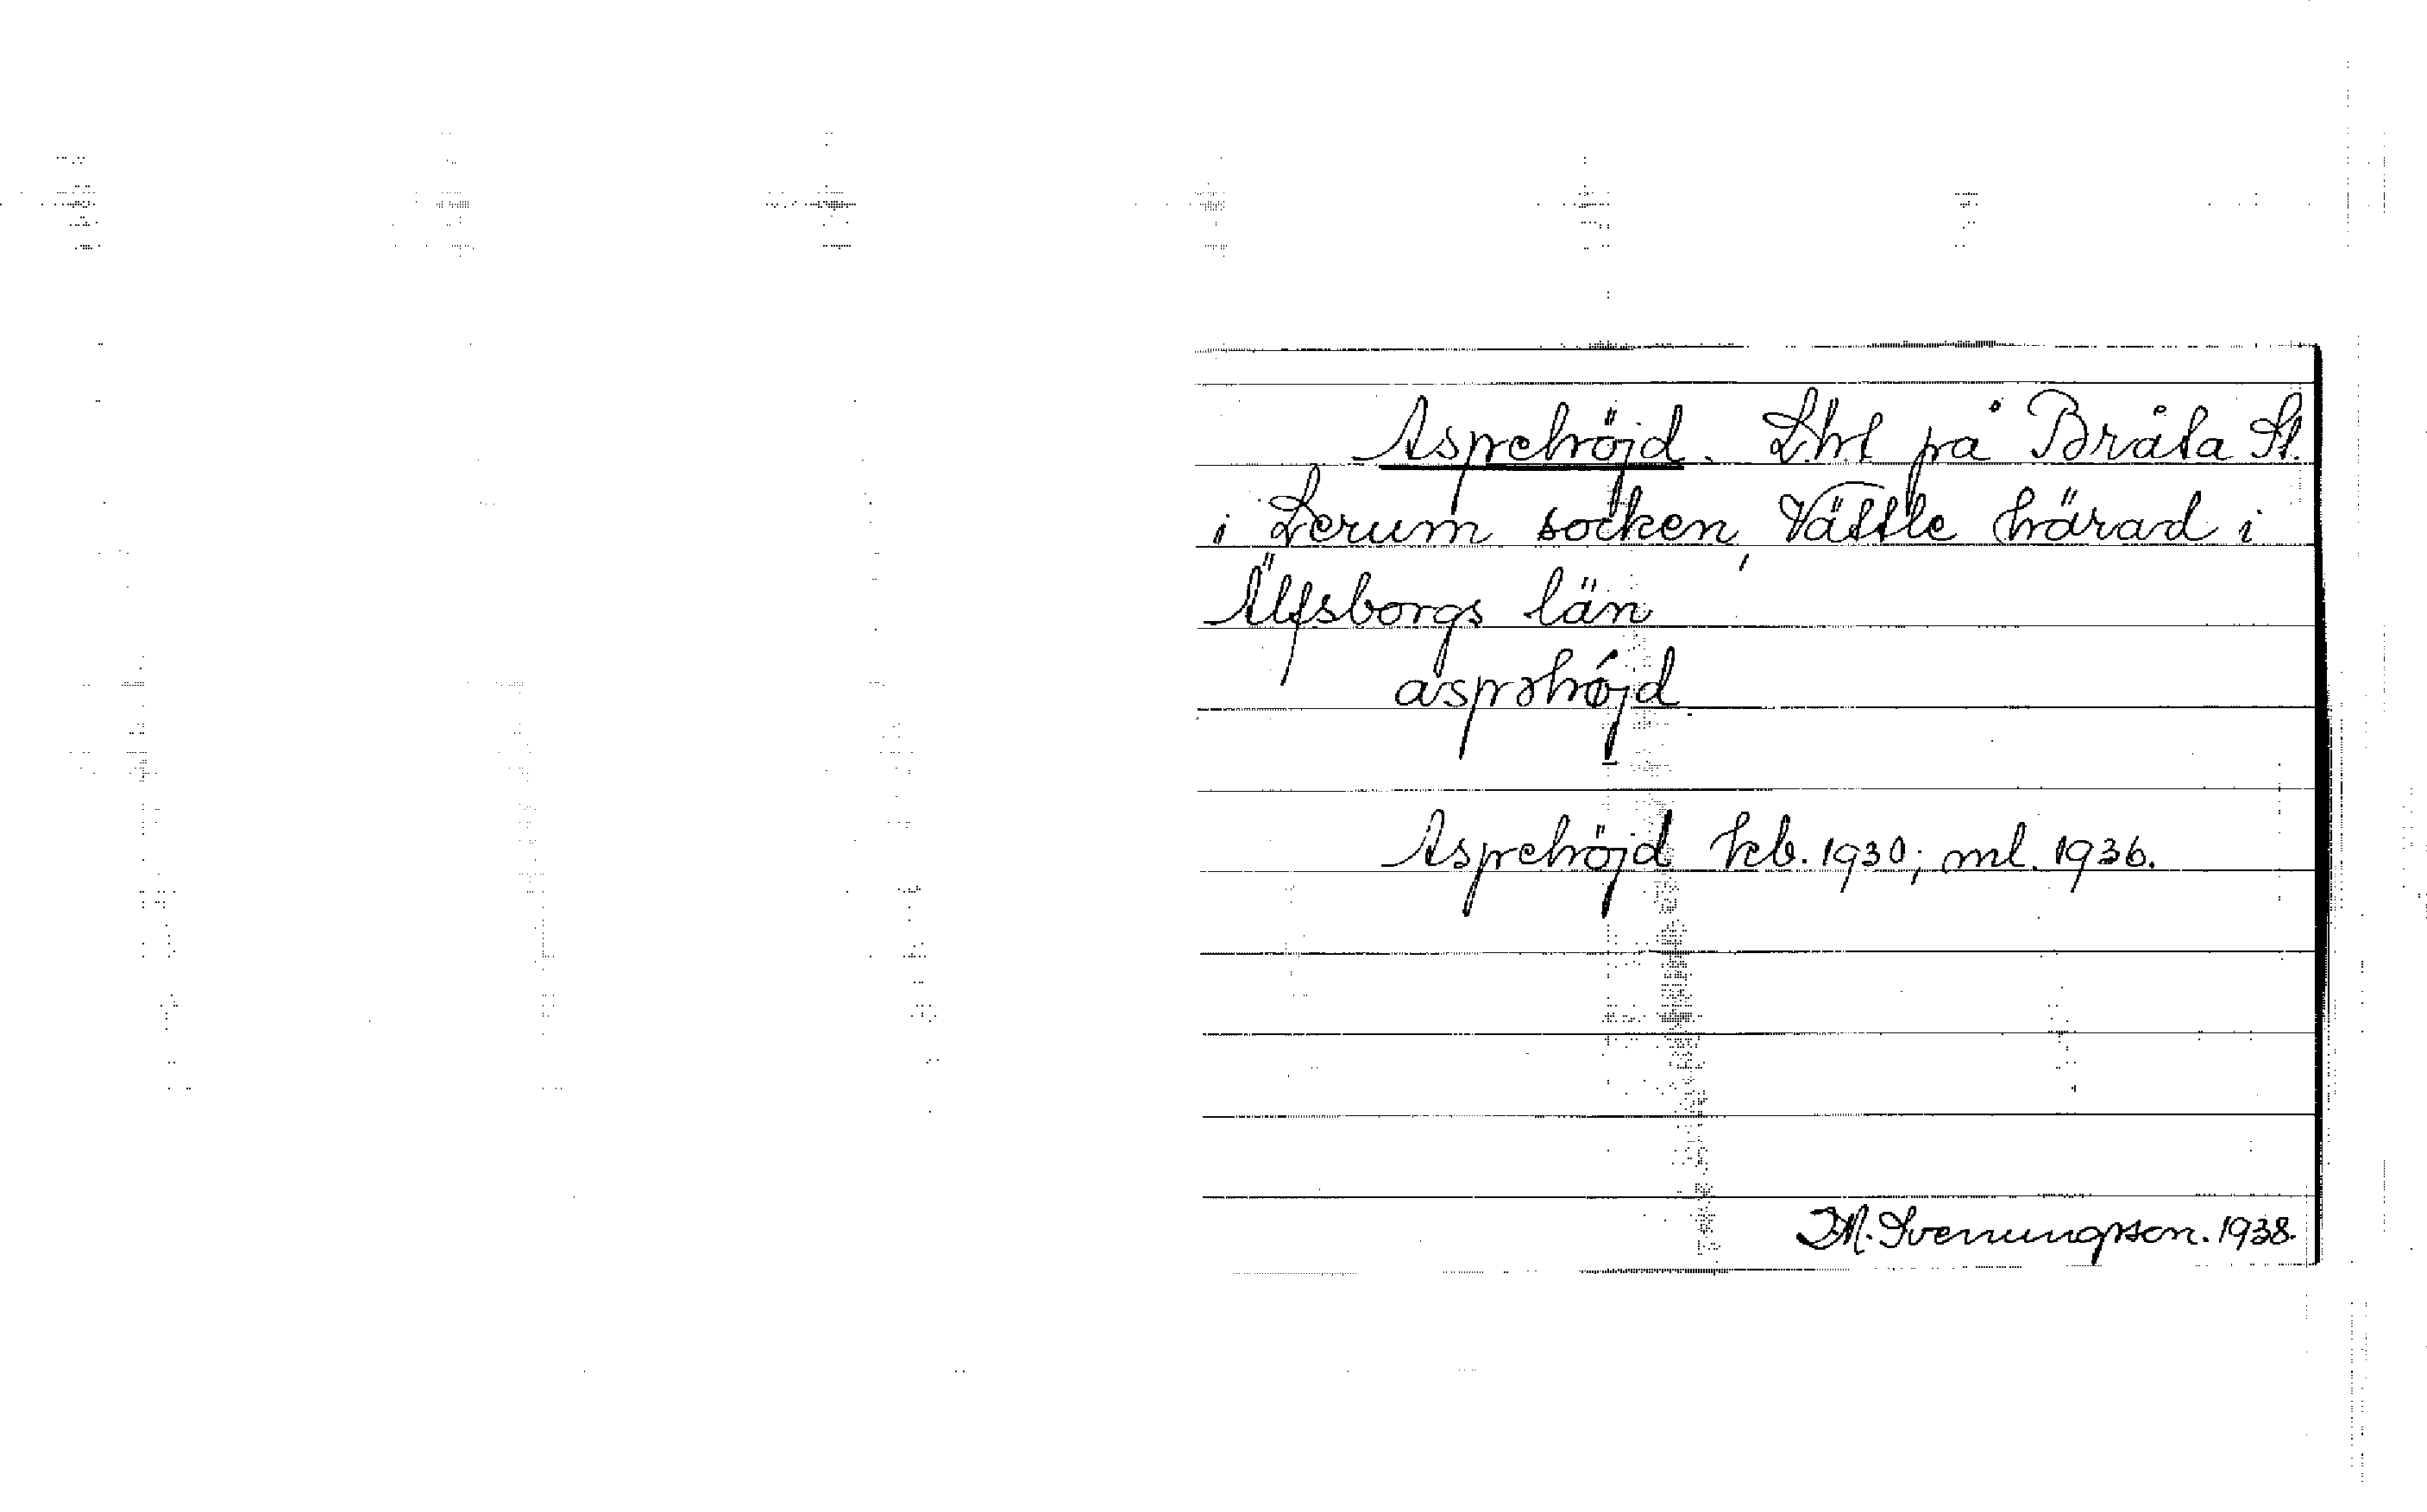 Aspehöjd. Lht på Bråta St.
i Lerum socken, Vättle härad i
Älfsborgs län
aspəhöjd
Aspehöjd kb. 1930; ml. 1936.
M. Svenungsson. 1938.